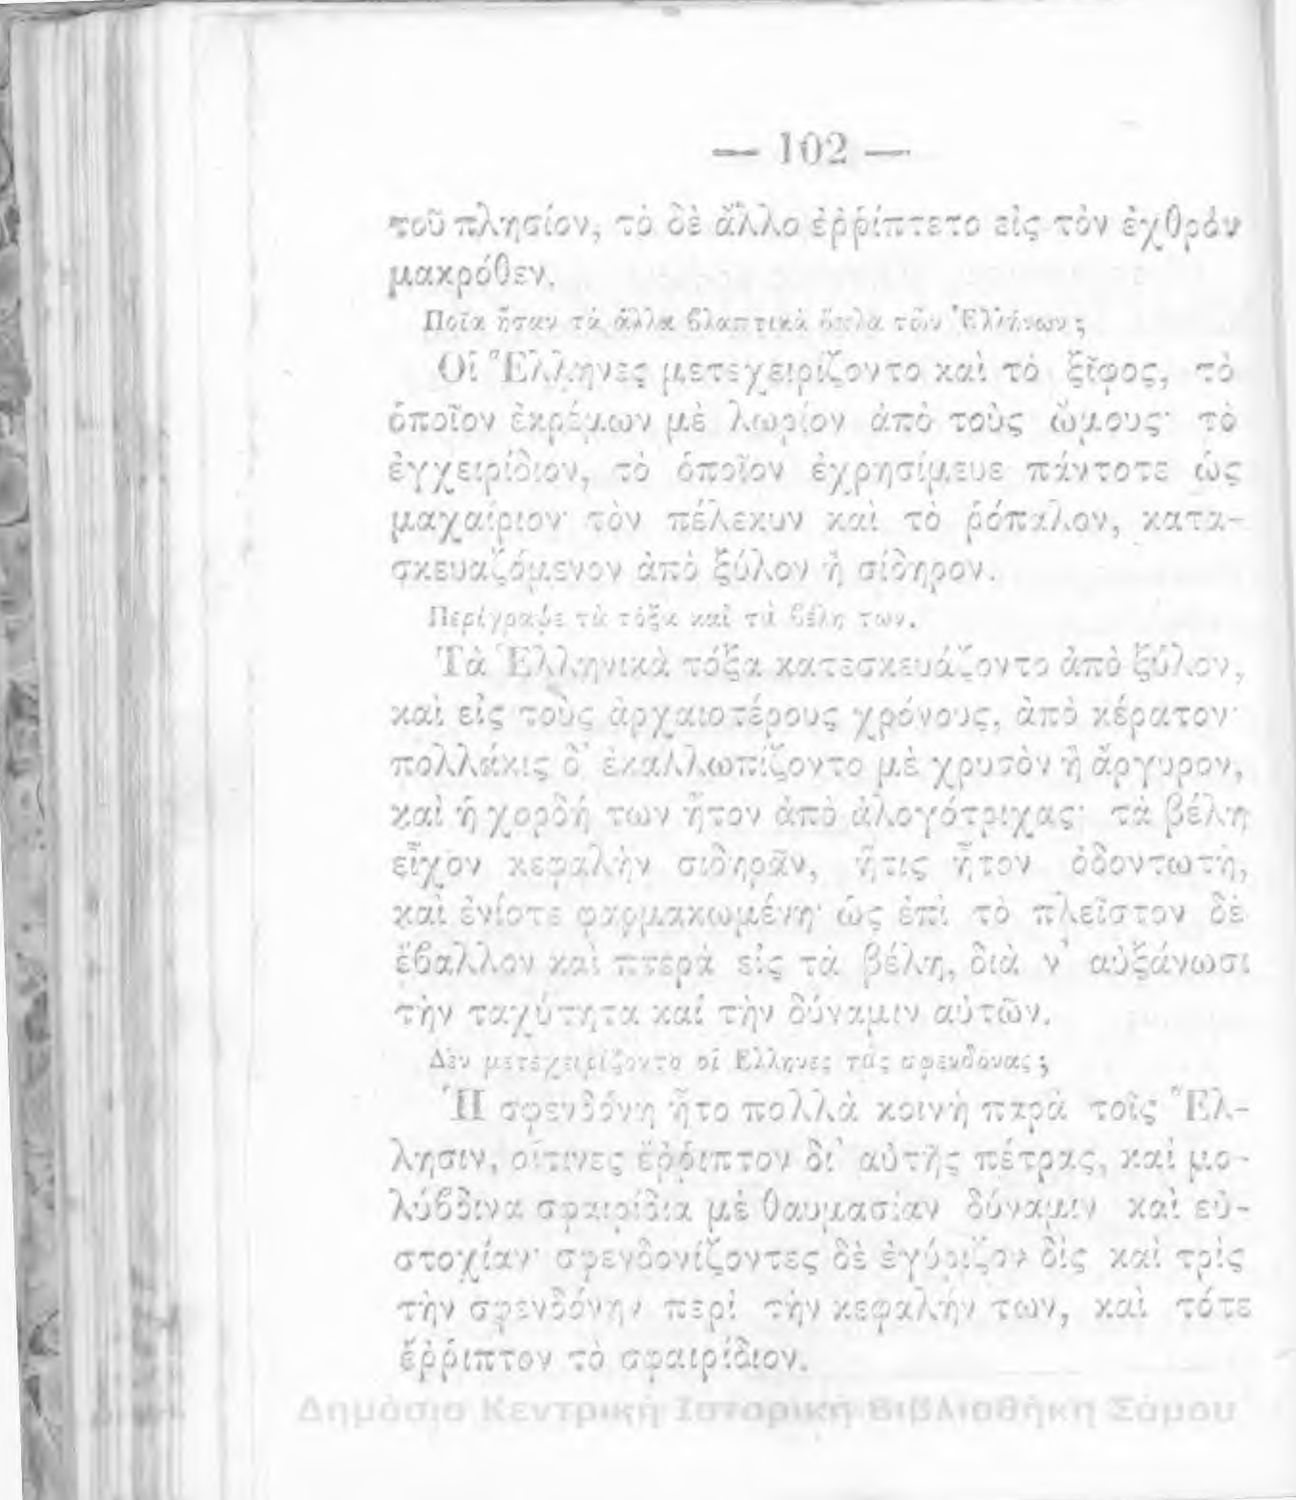 — 102 —
τοῦ πλησίον, τὸ δὲ ἄλλο ἐῤῥίπτετο εἰς τὸν ἐχθρόν
μακρόθεν.
Ποῖα ἦσαν τὰ ἄλλα βλαπτικὰ ὅπλα τῶν Ἑλλήνων;
Οἱ Ἕλληνες μετεχειρίζοντο καὶ τὸ ξῖφος, τὸ
ὁποῖον ἐκρέμων μὲ λωρίον ἀπὸ τοὺς ὤμους· τὸ
ἐγχειρίδιον, τὸ ὁποῖον ἐχρησίμευε πάντοτε ὡς
μαχαίριον· τὸν πέλεκυν καὶ τὸ ῥόπαλον, κατα-
σκευαζόμενον ἀπὸ ξύλον ἢ σίδηρον.
Περίγραψε τὰ τόξα καὶ τὰ βέλη των.
Τὰ Ἑλληνικὰ τόξα κατεσκευάζοντο ἀπὸ ξύλον,
καὶ εἰς τοὺς ἀρχαιοτέρους χρόνους, ἀπὸ κέρατον·
πολλάκις δ' ἐκαλλωπίζοντο μὲ χρυσὸν ἢ ἄργυρον,
καὶ ἡ χορδή των ἦτον ἀπὸ ἀλογότριχας· τὰ βέλη
εἶχον κεφαλὴν σιδηρᾶν, ἥτις ἦτον ὀδοντωτὴ,
καὶ ἐνίοτε φαρμακωμένη· ὡς ἐπὶ τὸ πλεῖστον δὲ
ἔβαλλον καὶ πτερὰ εἰς τὰ βέλη, διὰ ν' αὐξάνωσι
τὴν ταχύτητα καὶ τὴν δύναμιν αὐτῶν.
Δὲν μετεχειρίζοντο οἱ Ἕλληνες τὰς σφενδόνας;
Ἡ σφενδόνη ἦτο πολλὰ κοινὴ παρὰ τοῖς Ἕλ-
λησιν, οἵτινες ἔῤῥιπτον δι' αὐτῆς πέτρας, καὶ μο-
λύβδινα σφαιρίδια μὲ θαυμασίαν δύναμιν καὶ εὐ-
στοχίαν· σφενδονίζοντες δὲ ἐγύριζον δὶς καὶ τρὶς
τὴν σφενδόνην περὶ τὴν κεφαλήν των, καὶ τότε
ἔῤῥιπτον τὸ σφαιρίδιον.
Δημόσια Κεντρική Ιστορική Βιβλιοθήκη Σάμου